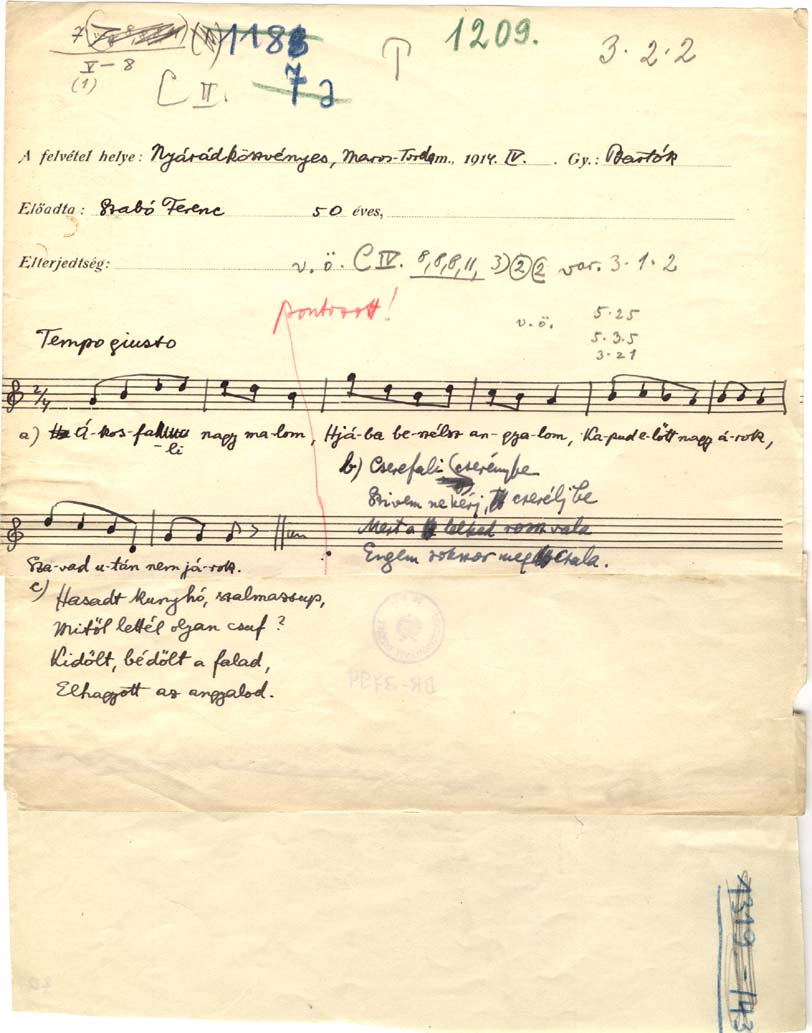 7 (N) 1188
V-8
(1)
C II. 7a
T
1209.
3·2·2
A felvétel helye: Nyárádköszvényes, Maros-Torda m., 1914. IV. Gy.: Bartók
Előadta: Szabó Ferenc 50 éves,
Elterjedtség: v. ö. C IV. 8,8,8,11, 3) 2 2 var. 3·1·2
pontozott!
v. ö. 5·25
5·3·5
3·21
Tempo giusto
2/4
a) Á-kos-fa-li nagy ma-lom, Hjá-ba be-szélsz an-gya-lom, Ka-pud e-lőtt nagy á-rok,
b) Cserefali cserénybe
Szivem ne kérj, cserélj be
Mert a lelked rossz vala
Engem sokszor megcsala.
Sza-vad u-tán nem já-rok.
c) Hasadt kunyhó, szalmazsup,
Mitől lettél olyan csuf?
Kidőlt, bédőlt a falad,
Elhagyott az angyalod.
1319-143